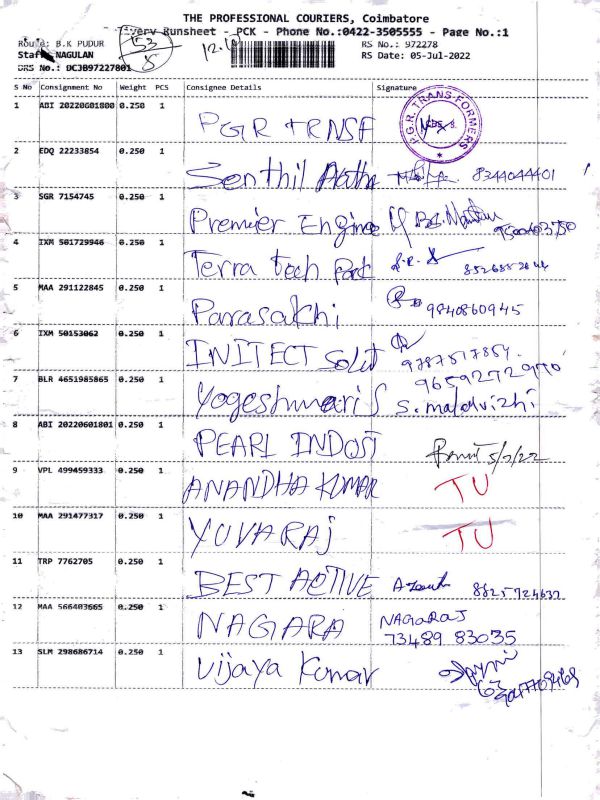 THE PROFESSIONAL COURIERS, Coimbatore
Delivery Runsheet - PCK - Phone No.:0422-3505555 - Page No.:1
Route: B.K PUDUR 53 12.10 RS No.: 972278
Staff: NAGULAN 8 RS Date: 05-Jul-2022
DRS No.: DCJB97227801
S No Consignment No Weight PCS Consignee Details Signature
1 ABI 20220601800 0.250 1 PGR TRNSF P.G.R. TRANS FORMERS
2 EDQ 22233854 0.250 1 Senthil 8344044401
3 SGR 7154745 0.250 1 Premier Engine
4 IXM 501729946 0.250 1 Terra tech Park
5 MAA 291122845 0.250 1 Parrasakhi 9840860945
6 IXM 50153062 0.250 1 INITECT Solut 9787517857.
9659272970
7 BLR 4651985865 0.250 1 Yogeshwari S S. malarvizhi
8 ABI 20220601801 0.250 1 PEARL INDUST 5/7/22
9 VPL 499459333 0.250 1 ANANDHA KUMAR TU
10 MAA 291477317 0.250 1 YUVARAJ TU
11 TRP 7762705 0.250 1 BEST ACTIVE 8825724637
12 MAA 566403665 0.250 1 NAGARA NAGARAJ
73489 83035
13 SLM 298686714 0.250 1 Vijaya Kumar